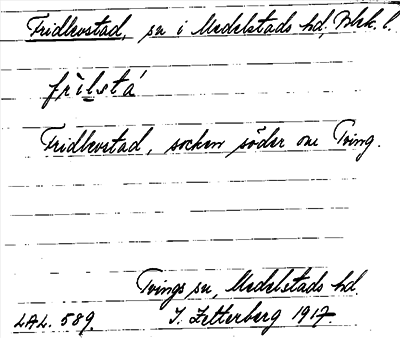 Fridlevstad, sn i Medelstads hd, Blek. l.
frìlstá
Fridlevstad, socken söder om Tving.
Tvings sn, Medelstads hd
LAL. 589. I. Zetterberg 1917.